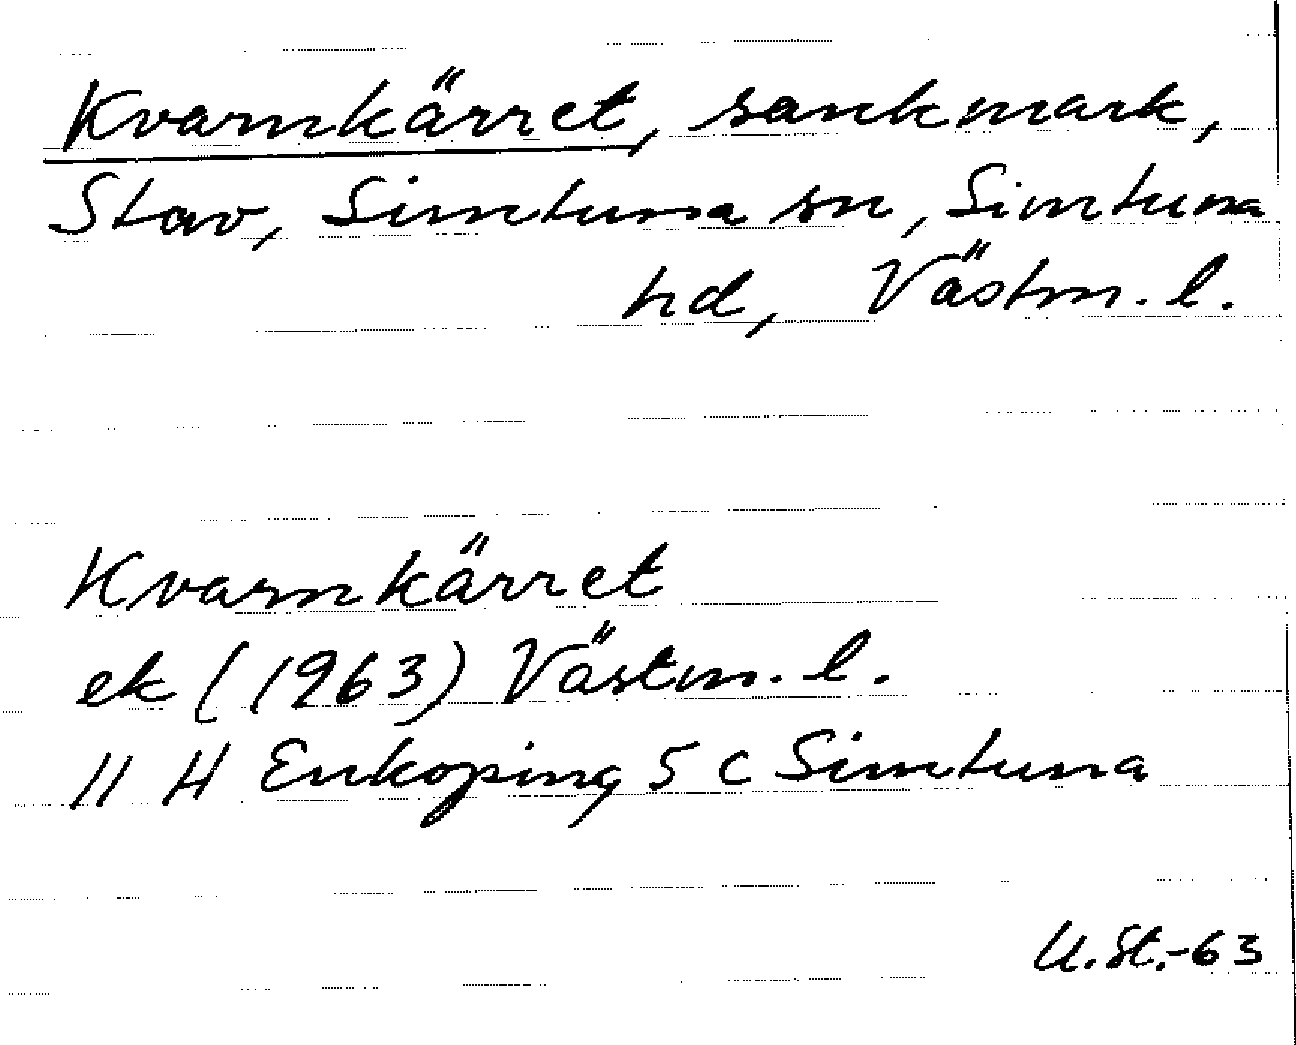 Kvarnkärret, sankmark,
Stav, Simtuna sn, Simtuna
hd, Västm. l.
Kvarnkärret
ek (1963) Västm. l.
11 H Enkoping 5 c Simtuna
U.St.-63